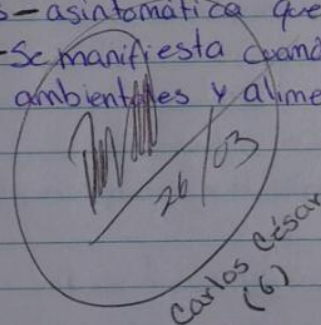 s - asintomática que
- Se manifiesta cuand
ambientales y alime
26/03
Carlos César
(6)